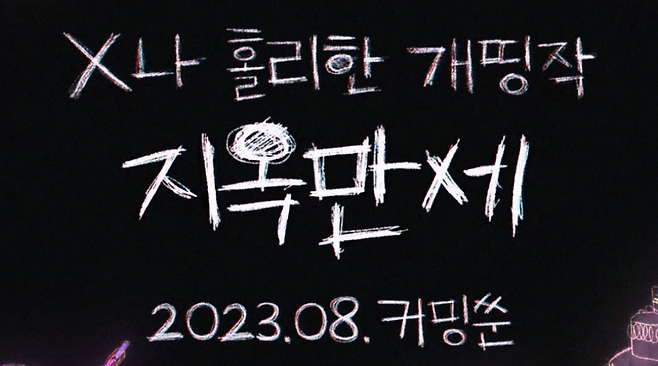 X나 홀리한 개띵작
지옥만세
2023.08. 커밍쑨